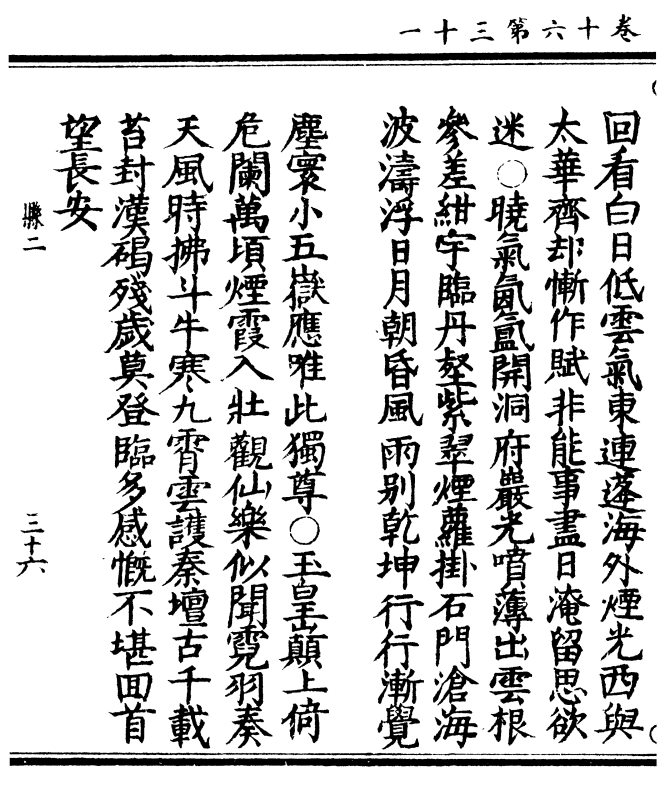 卷十六第三十一
回看白日低雲氣東連蓬海外煙光西與
太華齊却慚作賦非能事盡日淹留思欲
迷○曉氣氤氳開洞府巖光噴薄出雲根
參差紺宇臨丹壑紫翠煙蘿掛石門滄海
波濤浮日月朝昏風雨別乾坤行行漸覺
塵寰小五嶽應唯此獨尊○玉皇顛上倚
危闌萬頃煙霞入壯觀仙樂似聞霓羽奏
天風時拂斗牛寒九霄雲護秦壇古千載
苔封漢碣殘歲莫登臨多感慨不堪回首
望長安
縢二
三十六